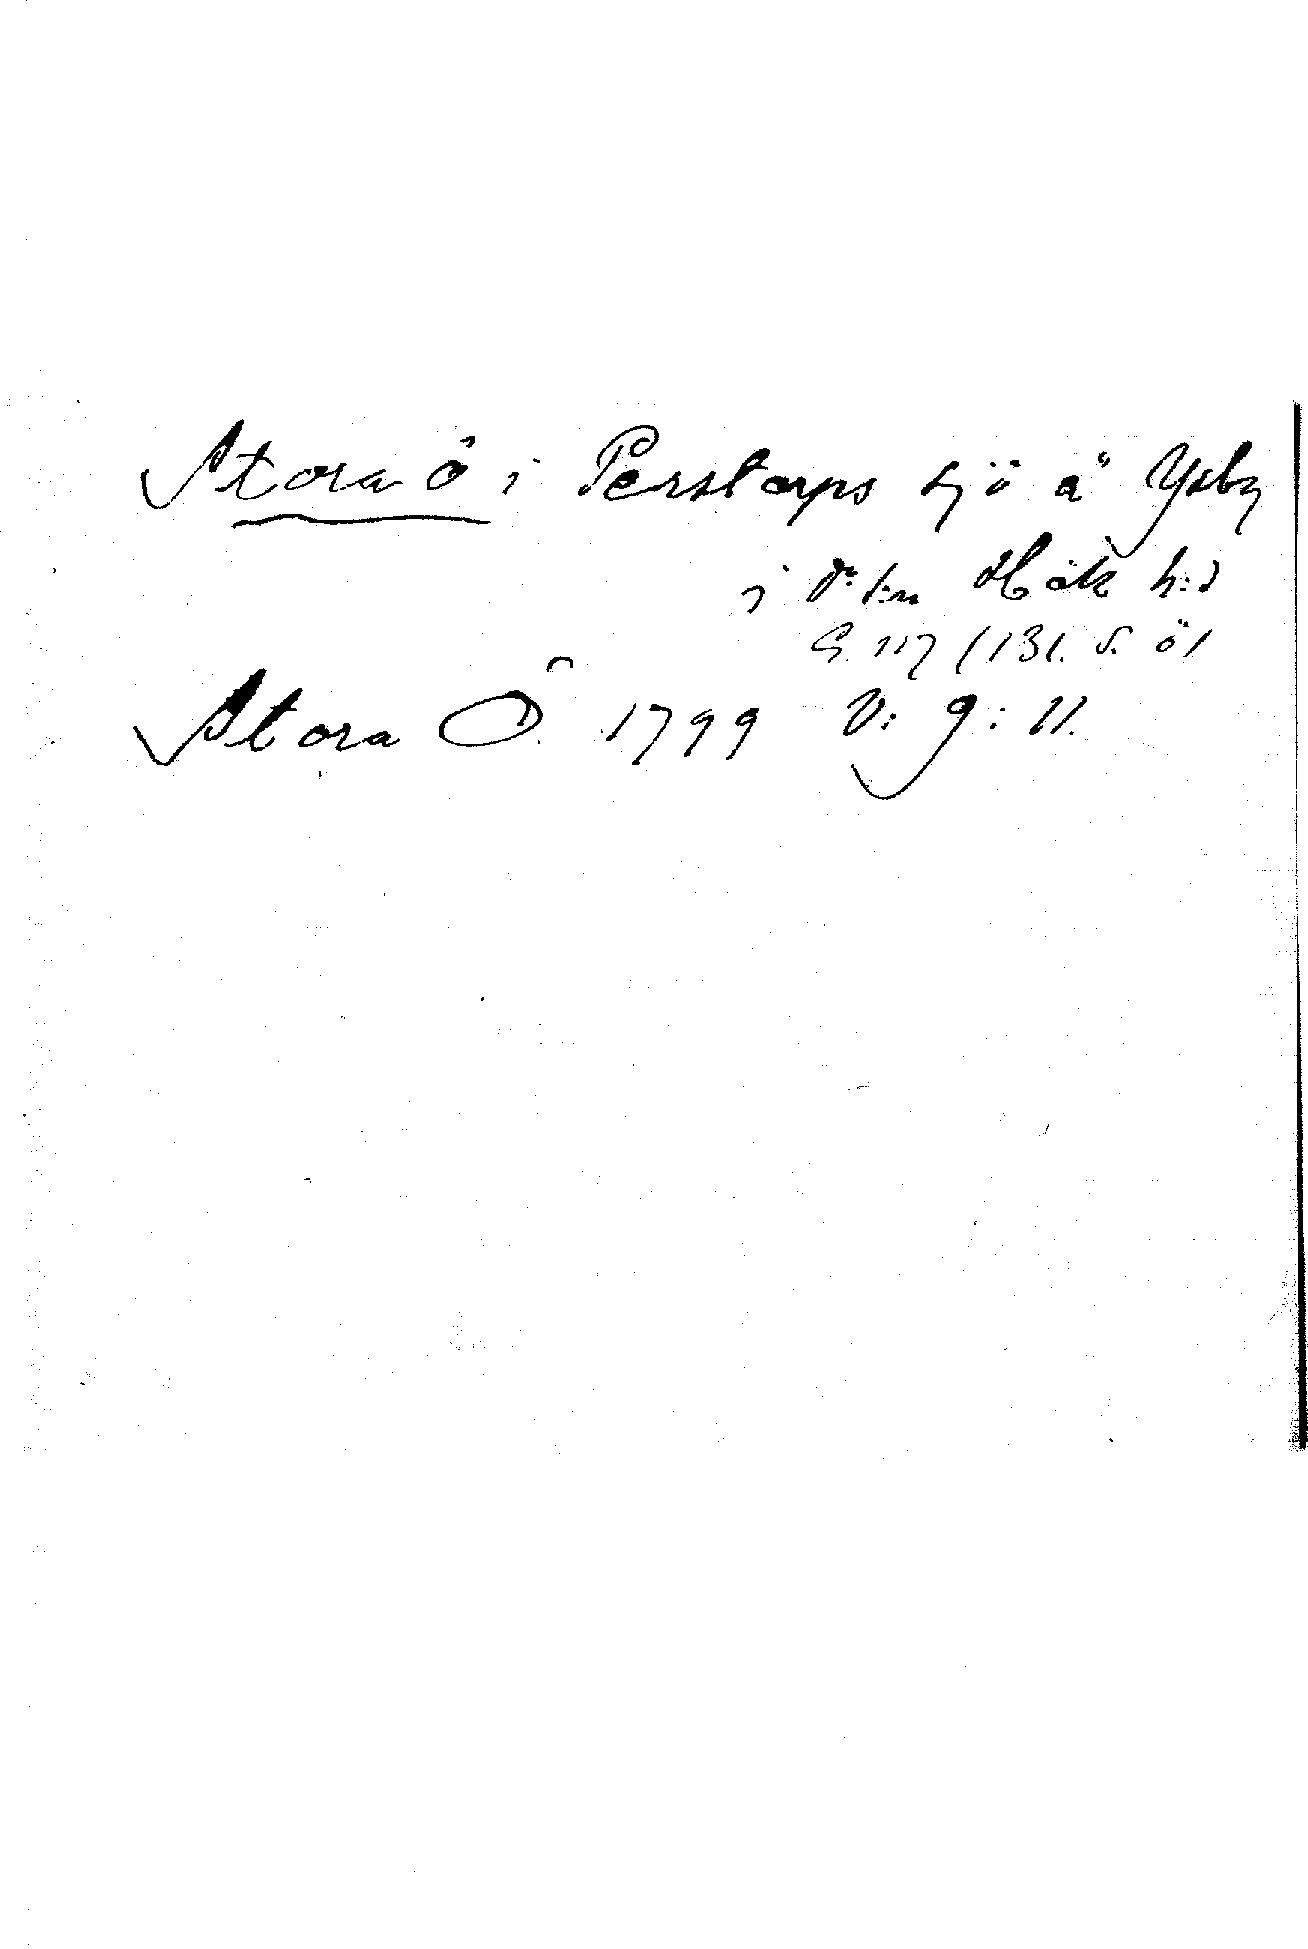 Stora ö i Perstorps sjö å Ysby
i d:o s:n Hök h:d
G. 117 (131. S. öl
Stora Ö 1799 V: 9: 11.